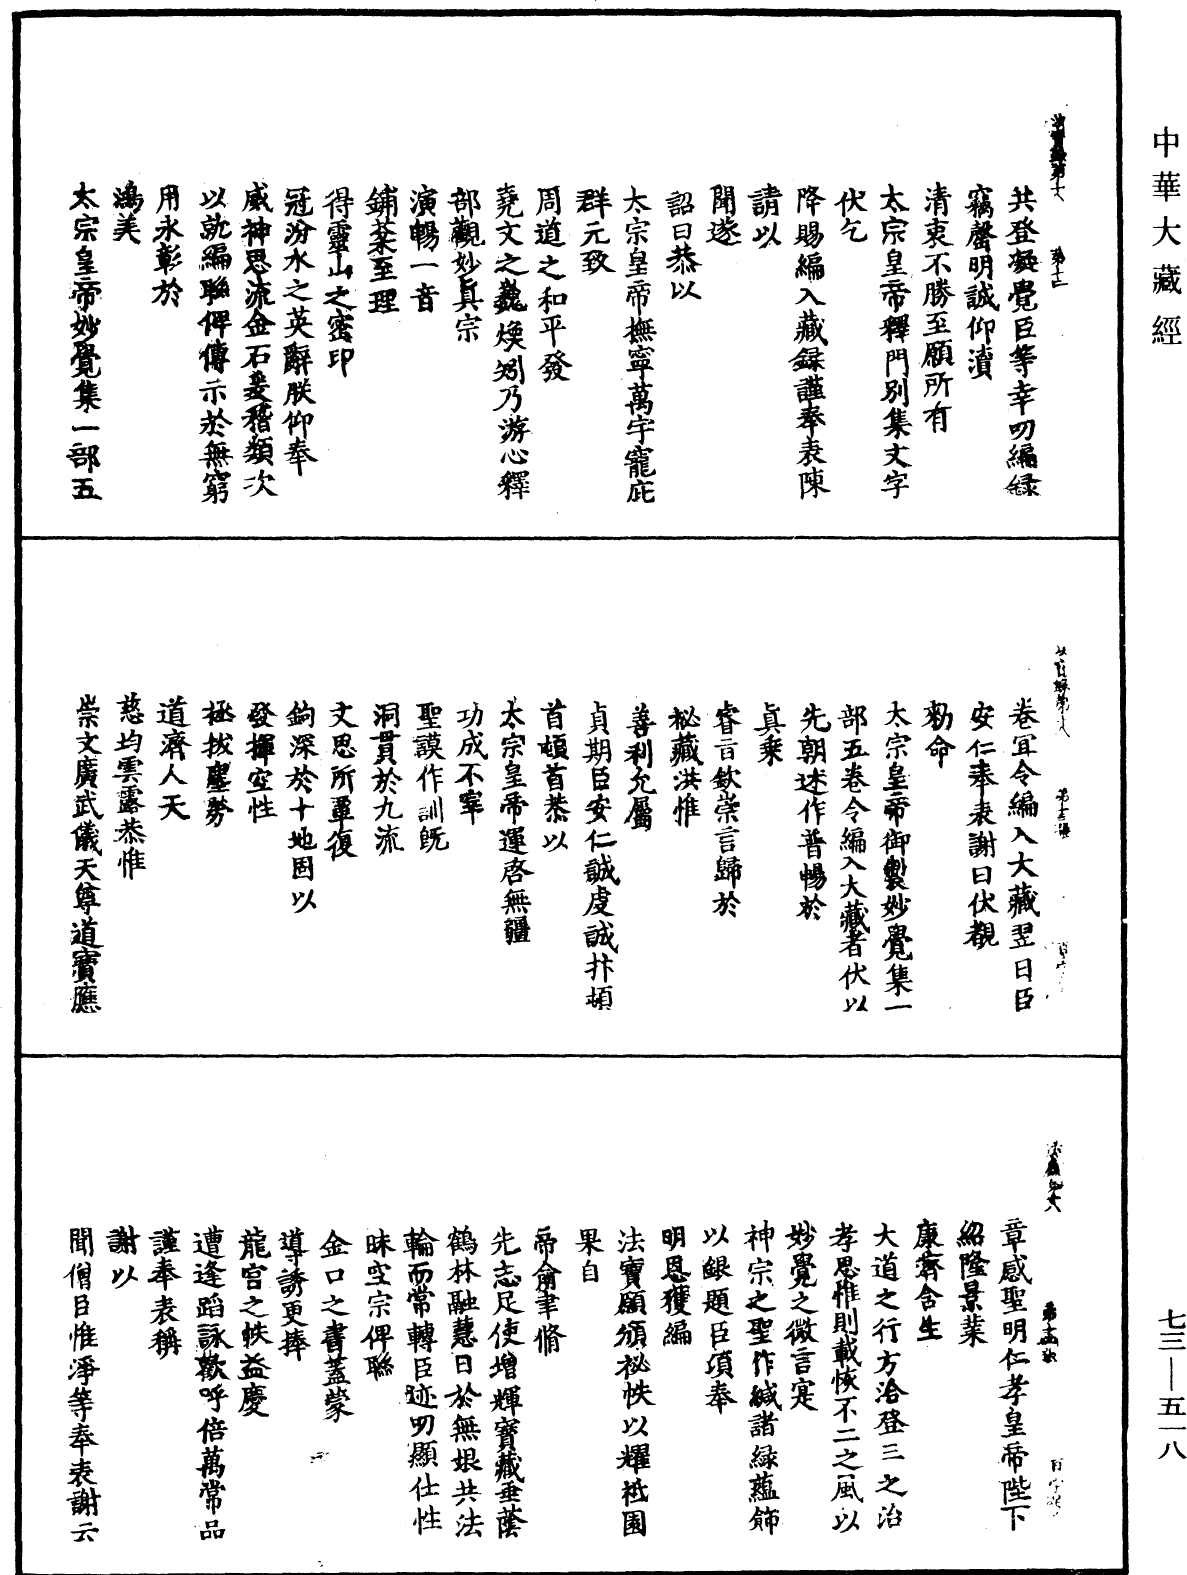 中華大藏經
共登凝覺臣等幸叨編録
竊罄明誠仰瀆
清衷不勝至願所有
太宗皇帝釋門別集文字
伏乞
降賜編入藏録謹奉表陳
請以
聞遂
詔曰恭以
太宗皇帝撫寧萬宇寵庇
群元致
周道之和平發
堯文之巍煥矧乃游心釋
部觀妙真宗
演暢一音
鋪棻至理
得靈山之密印
冠汾水之英辭朕仰奉
威神思流金石爰稽類次
以就編聯俾傳示於無窮
用永彰於
鴻美
太宗皇帝妙覺集一部五
卷宜令編入大藏翌日臣
安仁奉表謝曰伏覩
勑命
太宗皇帝御製妙覺集一
部五卷令編入大藏者伏以
先朝述作普暢於
真乗
睿言欽崇言歸於
祕藏洪惟
善利允屬
貞期臣安仁誠虔誠抃頓
首頓首恭以
太宗皇帝運啓無疆
功成不宰
聖謨作訓既
洞貫於九流
文思所覃復
鉤深於十地固以
發揮空性
拯拔塵勞
道濟人天
慈均雲露恭惟
崇文廣武儀天尊道寶應
章感聖明仁孝皇帝陛下
紹隆景業
康濟含生
大道之行方洽登三之治
孝思惟則載恢不二之風以
妙覺之微言寔
神宗之聖作緘諸緑蘊飾
以銀題臣項奉
明恩獲編
法寶願頒祕帙以耀祗園
果自
帝俞聿脩
先志足使增輝寶藏垂蔭
鶴林融慧日於無垠共法
輪而常轉臣迹叨顯仕性
昧空宗俾聯
金口之書蓋蒙
導誘更捧
龍宮之帙益慶
遭逢蹈詠歡呼倍萬常品
謹奉表稱
謝以
聞僧臣惟淨等奉表謝云
七三—五一八